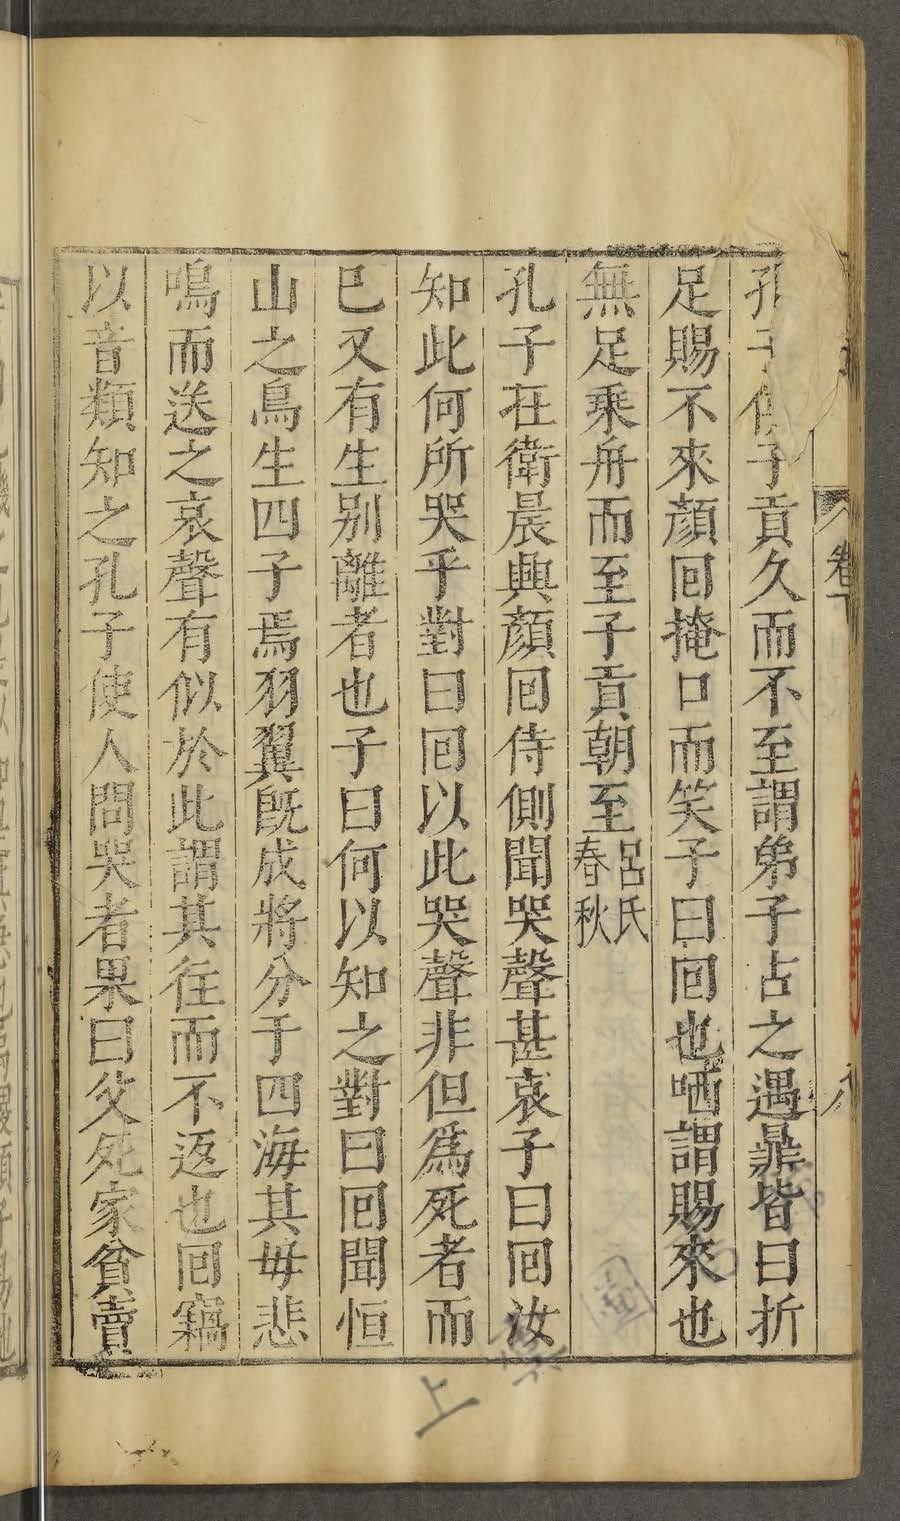 孔子使子貢久而不至謂弟子占之遇鼎皆曰折
足賜不來顏囘掩口而笑子曰囘也哂謂賜來也
無足乗舟而至子貢朝至呂氏春秋
孔子在衛晨興顏囘侍側聞哭聲甚哀子曰囘汝
知此何所哭乎對曰囘以此哭聲非但爲死者而
巳又有生别離者也子曰何以知之對曰囘聞恒
山之鳥生四子焉羽翼旣成將分于四海其毋悲
鳴而送之哀聲有似於此謂其往而不返也囘竊
以音類知之孔子使人問哭者果曰父死家貧賣
卷下
八